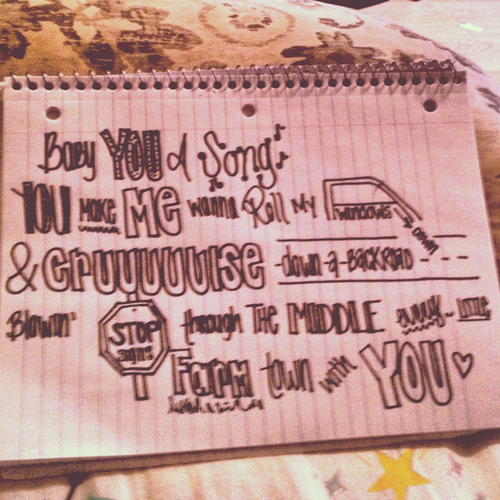 Baby YOU a Song
YOU MAKE Me wanna Roll My WINDOWS DOWN
& CruuuuuuIse down-a-BACKROAD
Blowin' STOP SIGNS through The MIDDLE every LITTLE
Farm town with YOU